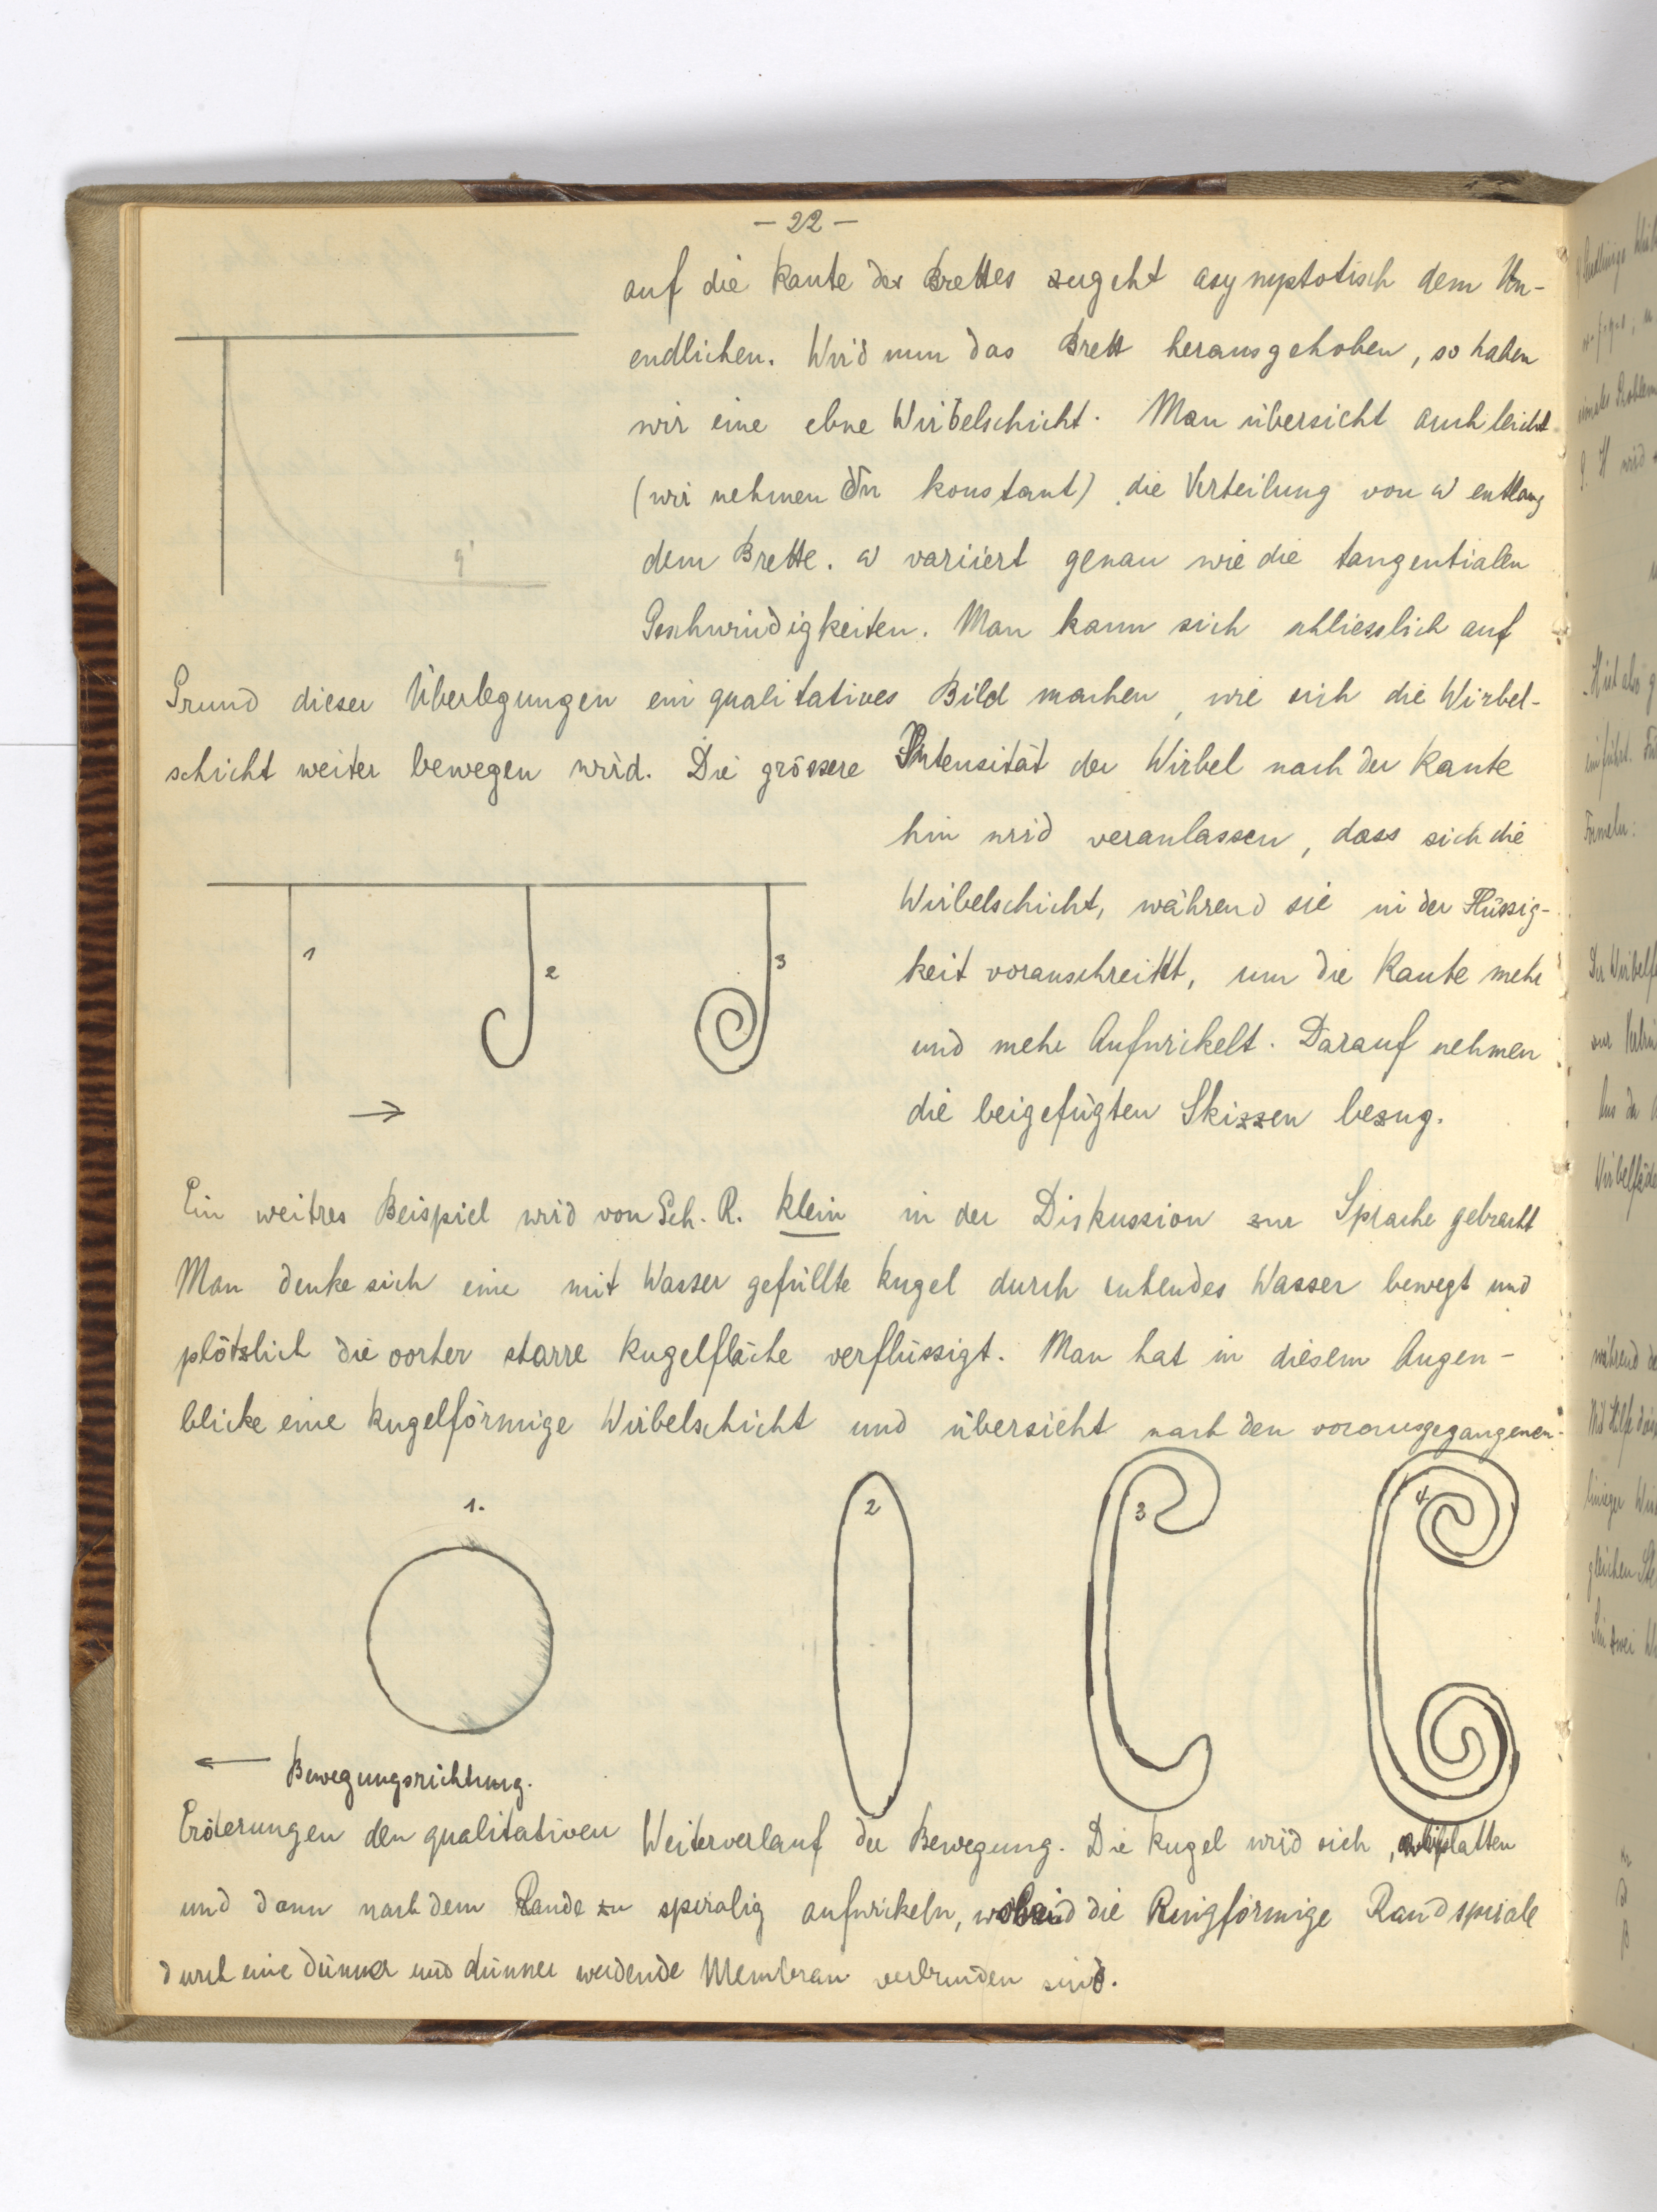 - 22 -
auf die Kante des Brettes zugeht asymptotisch dem Un-
endlichen. Wird nun das Brett herausgehoben, so haben
wir eine ebne Wirbelschicht. Man übersieht auch leicht
(wir nehmen δn konstant) die Verteilung von ω entlang
dem Brette. ω variiert genau wie die tangentialen
Geschwindigkeiten. Man kann sich schliesslich auf
Grund dieser Überlegungen ein qualitatives Bild machen, wie sich die Wirbel-
schicht weiter bewegen wird. Die grössere Intensität der Wirbel nach der Kante
hin wird veranlassen, dass sich die
Wirbelschicht, während sie in der Flüssig-
keit voranschreitet, um die Kante mehr
und mehr Aufwickelt. Darauf nehmen
die beigefügten Skizzen bezug.
q'
1
2
3
Ein weitres Beispiel wird von Geh. R. Klein in der Diskussion zur Sprache gebracht
Man denke sich eine mit Wasser gefüllte Kugel durch ruhendes Wasser bewegt und
plötzlich die vorher starre Kugelfläche verflüssigt. Man hat in diesem Augen-
blicke eine kugelförmige Wirbelschicht und übersieht nach den vorausgegangenen
1.
2
3
4
Bewegungsrichtung.
Eröterungen den qualitativen Weiterverlauf der Bewegung. Die Kugel wird sich, abplatten
und dann nach dem Rande zu spiralig aufwickeln, die Ringförmige Randspirale
durch eine dünner und dünner werdende Membran verbunden sind.